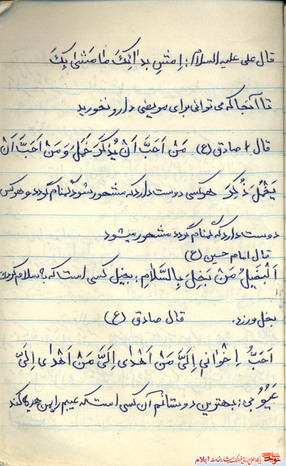 قال علی علیه السلام: اِمشِ بِدائِکَ ما مَشیٰ بِکَ
تا آنجا که می توانی برای مریضی دارو نخورید
قال صادق (ع) مَنْ اَحَبَّ اَنْ یُذکَرَ خَمَلَ وَ مَنْ اَحَبَّ اَنْ
یَخْمُلَ ذُکِرَ هر کسی دوست دارد که مشهور بشود گمنام گردد و هر کس
دوست دارد که گمنام گردد مشهور میشود
قال امام حسین (ع)
اَلْبَخیلُ مَنْ بَخِلَ بِالسَّلامِ: بخیل کسی است که به سلام کردن
بخل ورزد. قال صادق (ع)
اَحَبُّ اِخْوانی اِلَیَّ مَنْ اَهْدٰی اِلَیَّ
عُیُوبی: بهترین دوستانم آن کسی است که عیبم را بمن هدیه کند